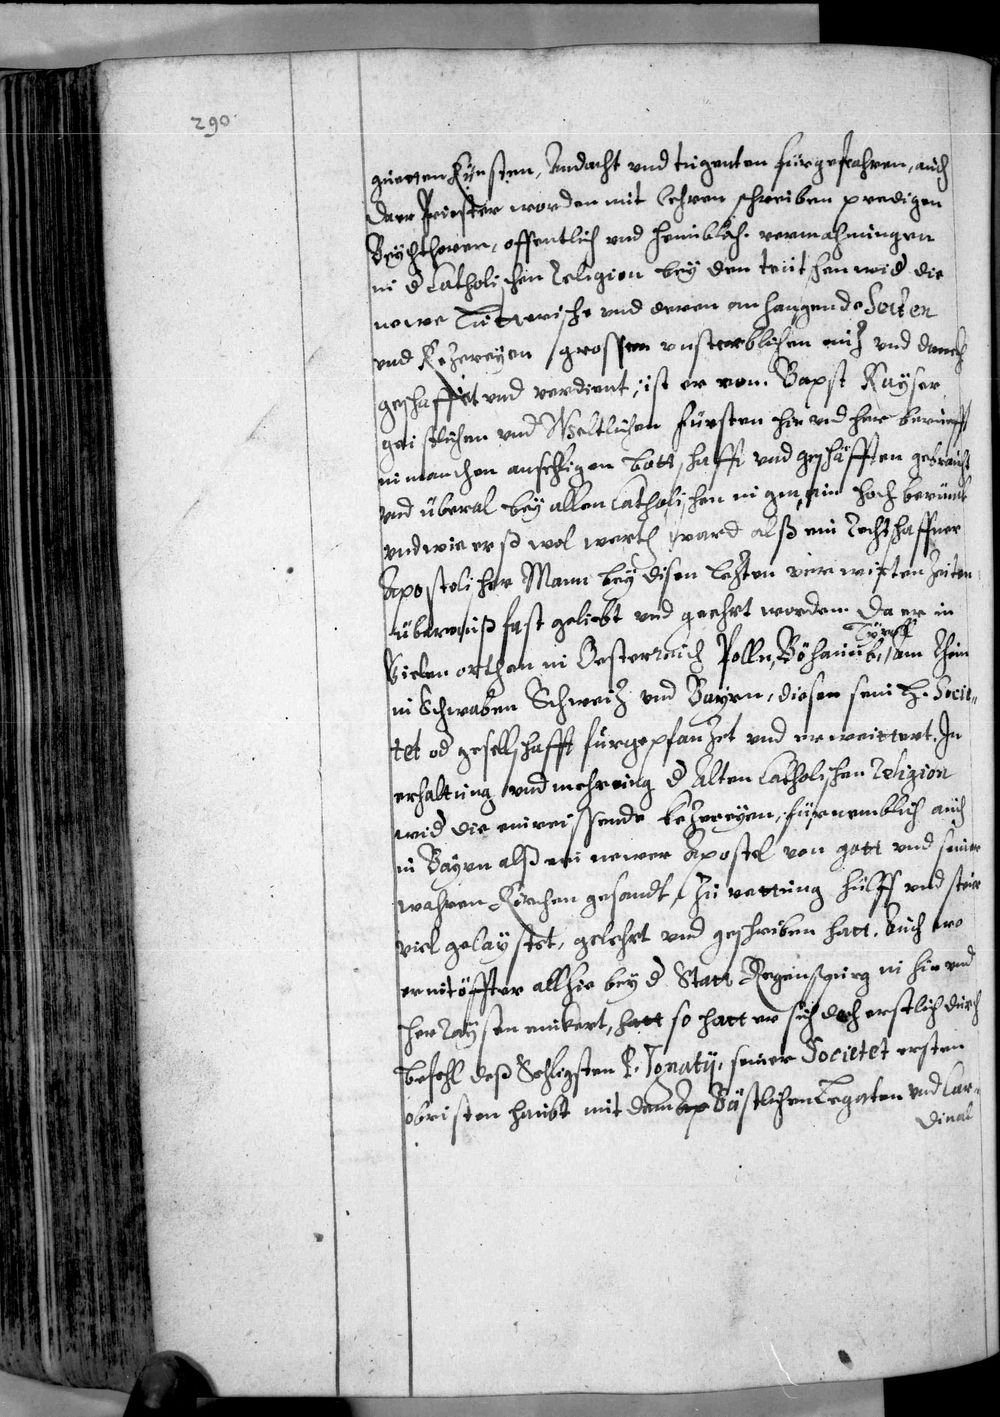 290
gueten Künsten, Andacht und tugenten fürgefahren, auch
da er Priester worden mit lehren schreiben predigen
Beychthoren, offentlich und heimblich vermahnungen
in d Catholischen Religion bey den teutschen wid die
newe Lutterische und deren anhangende Secten
und Kezereyen grossen unsterblichen nuz und danckh
geschafft und verdient, ist er von Bapst Kayser
geistlichen und Weltlichen Fürsten hin und her berueff
in manchen ansechligen bottschafft und geschäfften gebraucht
und überal bey allen Catholischen in gmein hoch berümbt
und wie erß wol werth ward alß ein rechtschaffner
Apostolischer Mann bey disen lezten verwirten Zeiten
überauß fast geliebt und geehrt worden. Da er in
Tyroll
Vielen orthen in Oesterreich Polln, Böhaim, am Rhein
in Schwaben Schweiz und Bayrn, diesen sein H. Socie-
tet od gesellschafft fürgepflanzet und erweittert. In
erhaltung und mehrung d Alten Catholischen Religion
wid die einreissende kezereyen, fürnemblich auch
in Bayrn alß ein newer Apostel von gott und seiner
wahren Kirchen gesandt, zu rettung hülff und steir
viel gelaystet, gelehrt und geschriben hatt. Auch wo
er nit öffter allhie bey d Statt Regenspurg in hin und
her raysen einkert, hatt so hatt er sich doch erstlich durch
befehl deß Sehligsten P. Ignatij, seiner Societet ersten
obristen haubt mit dem Bästlichen Legaten und Car-
dinal